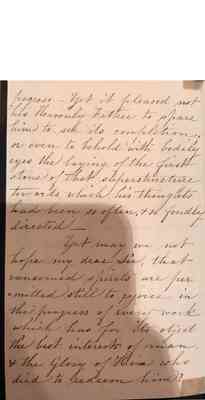 progress – Yet it pleased not
his Heavenly Father to spare
him to see its completion,
or even to behold with bodily
eyes the laying of the first
stone of that superstructure
towards which his thoughts
had been so often, & so fondly
directed –
Yet may we not
hope my dear Sir, that
ransomed spirits are per
mitted still to rejoice in
the progress of every work
which has for its object
the best interests of man
& the Glory of Him who
died to redeem him?